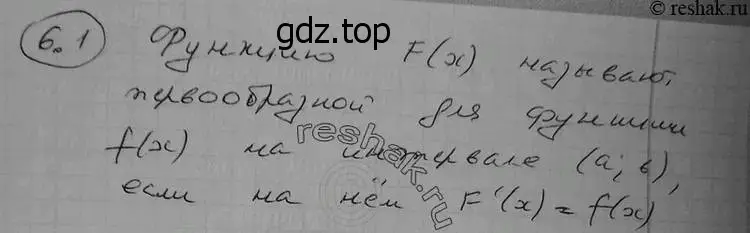 © reshak.ru
gdz.top
6.1 Функцию F(x) называют
первообразной для функции
f(x) на интервале (a; b),
если на нём F'(x) = f(x)
reshak.ru